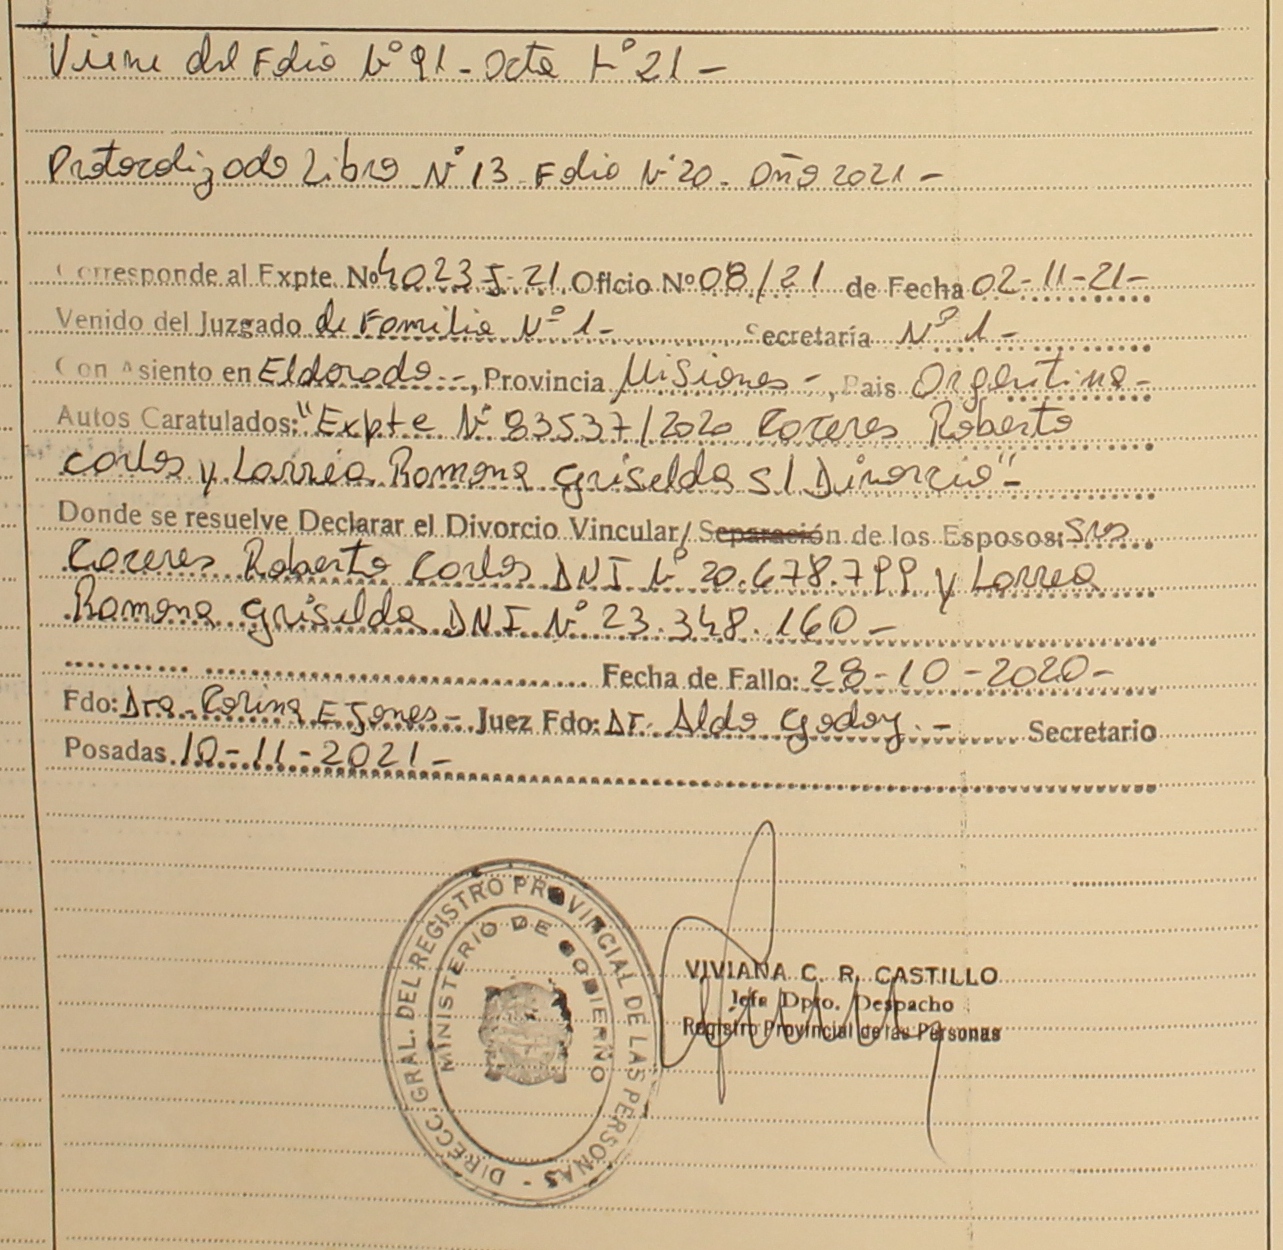 Viene del Folio N° 91 - Acta N° 21 -
Protocolizado Libro N° 13 Folio N° 20. Año 2021 -
Corresponde al Expte. Nº 4023-I-21 Oficio Nº 08/21 de Fecha 02-11-21-
Venido del Juzgado de Familia Nº 1- Secretaría Nº 1-
Con Asiento en Eldorado -, Provincia Misiones -, Pais Argentina -
Autos Caratulados: "Expte N° 83537/2020 Caceres Roberto
Carlos y Larrea Ramona Griselda s/ Divorcio" -
Donde se resuelve Declarar el Divorcio Vincular/ Separación de los Esposos: Sres
Caceres Roberto Carlos DNI N° 20.678.799 y Larrea
Ramona Griselda DNI N° 23.348.160 -
Fecha de Fallo: 28-10-2020-
Fdo: Dra. Corina E Jones - Juez Fdo: Dr. Aldo Godoy. - Secretario
Posadas 10-11-2021-
DIRECC. GRAL. DEL REGISTRO PROVINCIAL DE LAS PERSONAS -
MINISTERIO DE GOBIERNO
VIVIANA C. R. CASTILLO
Jefa Dpto. Despacho
Registro Provincial de las Personas